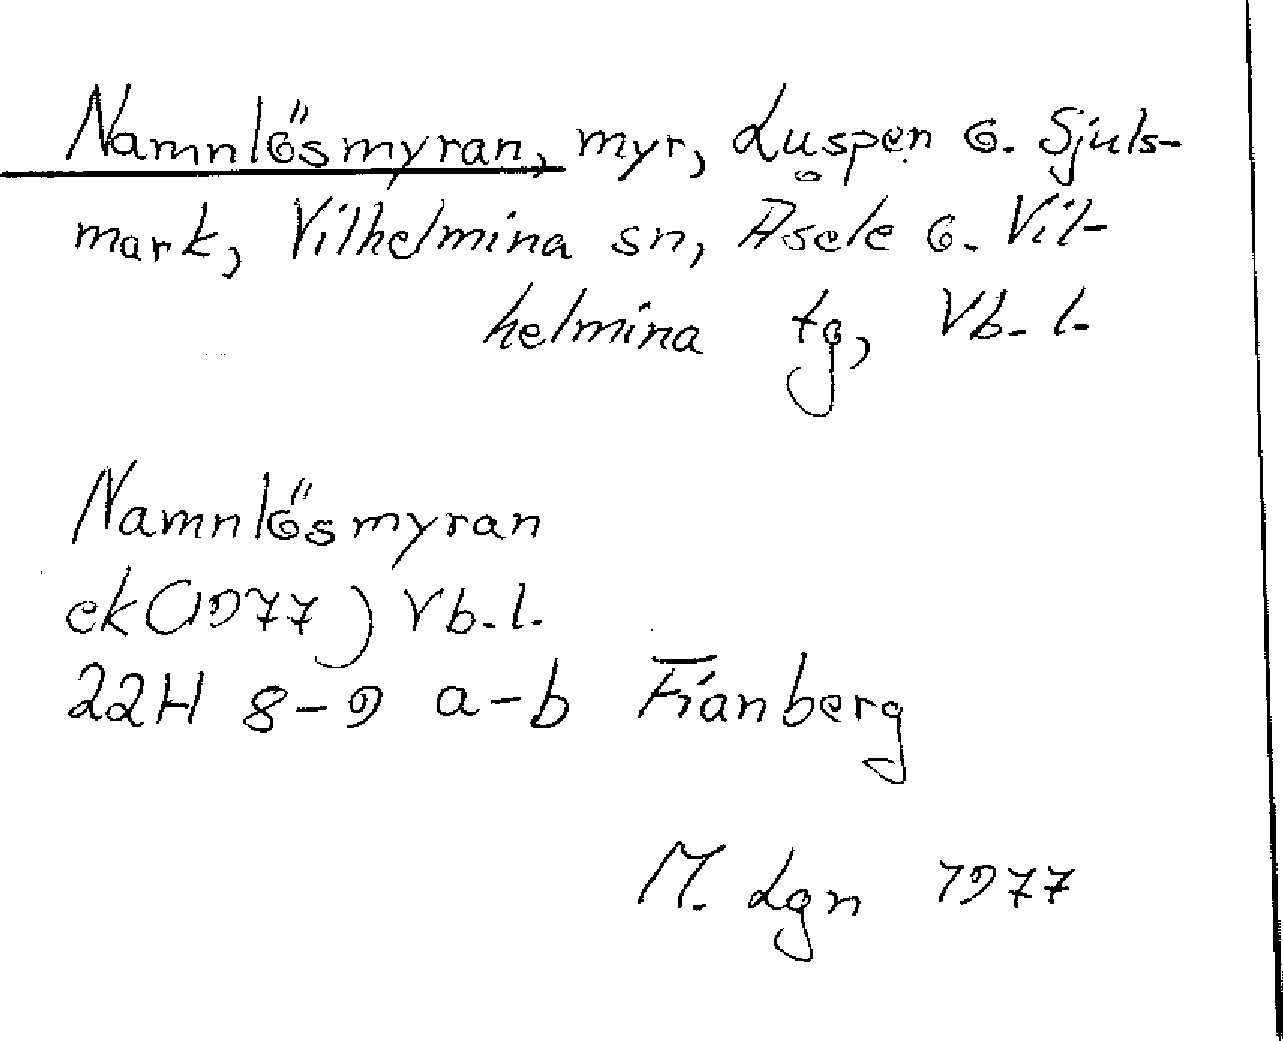 Namnlösmyran, myr, Luspen o. Sjuls-
mark, Vilhelmina sn, Åsele o. Vil-
helmina tg, Vb. l.
Namnlösmyran
ek (1977) Vb. l.
22H 8-9 a-b Fianberg
M. Lgn 1977